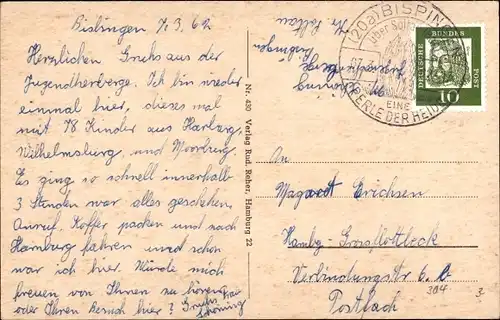 Bislingen 7.3.62
Herzlichen Gruß aus der
Jugendherberge. Ich bin wieder
einmal hier, dieses mal
mit 78 Kinder aus Harburg,
Wilhelmsburg, und Moorburg.
Es ging so schnell innerhalb
3 Stunden war alles geschehen,
Anruf, Koffer packen und nach
Hamburg fahren und schon
war ich hier. Würde mich
freuen von Ihnen zu hören
oder Ihren Besuch hier? Gruß Frau
Nr. 430 Verlag Rud. Reher, Hamburg 22
(20a) BISPING
über Soltau
EINE
PERLE DER HEI
DEUTSCHE BUNDES POST
10
An
Erichsen
Hambg-Grossflottbeck
Verbindungstr 6
Postfach
304
3.